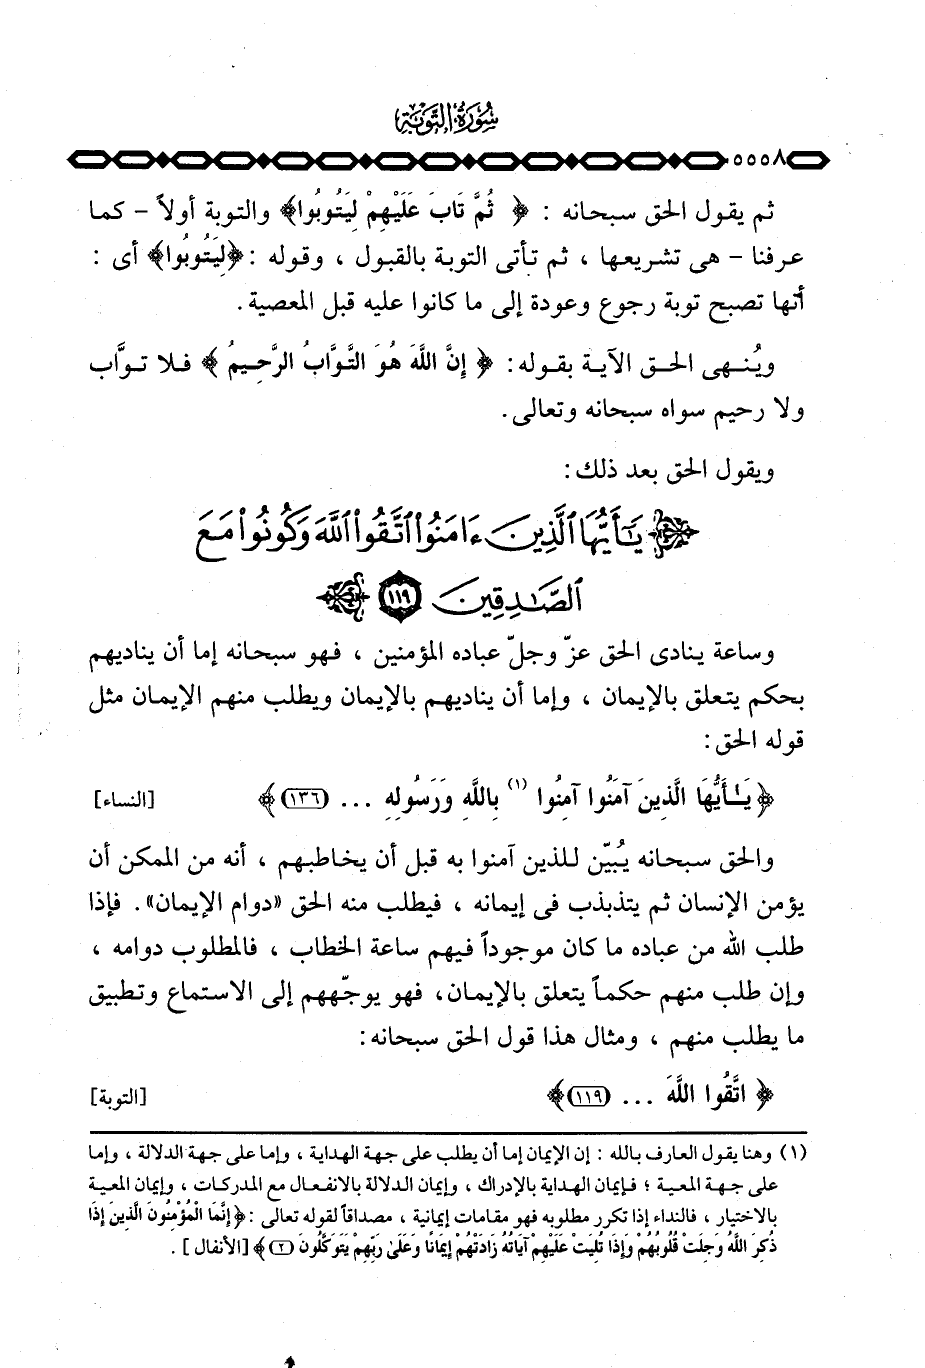 سُورَةُ التَّوبَةِ
٥٥٥٨
ثم يقول الحق سبحانه : ﴿ ثُمَّ تَابَ عَلَيْهِمْ لِيَتُوبُوا﴾ والتوبة أولاً – كما
عرفنا – هى تشريعها ، ثم تأتى التوبة بالقبول ، وقوله : ﴿لِيَتُوبُوا﴾ أى :
أنها تصبح توبة رجوع وعودة إلى ما كانوا عليه قبل المعصية.
ويُنهى الحق الآية بقوله: ﴿ إِنَّ اللَّهَ هُوَ التَّوَّابُ الرَّحِيمُ ﴾ فلا توَّاب
ولا رحيم سواه سبحانه وتعالى.
ويقول الحق بعد ذلك:
يَٰٓأَيُّهَا ٱلَّذِينَ ءَامَنُوا۟ ٱتَّقُوا۟ ٱللَّهَ وَكُونُوا۟ مَعَ
ٱلصَّٰدِقِينَ ١١٩
وساعة ينادى الحق عزّ وجلّ عباده المؤمنين ، فهو سبحانه إما أن يناديهم
بحكم يتعلق بالإيمان ، وإما أن يناديهم بالإيمان ويطلب منهم الإيمان مثل
قوله الحق:
﴿ يَٰأَيُّهَا الَّذِينَ آمَنُوا آمِنُوا (١) بِاللَّهِ وَرَسُولِهِ ... (١٣٦) ﴾ [النساء]
والحق سبحانه يُبيّن للذين آمنوا به قبل أن يخاطبهم ، أنه من الممكن أن
يؤمن الإنسان ثم يتذبذب فى إيمانه ، فيطلب منه الحق «دوام الإيمان». فإذا
طلب الله من عباده ما كان موجوداً فيهم ساعة الخطاب ، فالمطلوب دوامه ،
وإن طلب منهم حكماً يتعلق بالإيمان، فهو يوجّههم إلى الاستماع وتطبيق
ما يطلب منهم ، ومثال هذا قول الحق سبحانه:
﴿ اتَّقُوا اللَّهَ ... (١١٩)﴾ [التوبة]
(١) وهنا يقول العارف بالله : إن الإيمان إما أن يطلب على جهة الهداية ، وإما على جهة الدلالة ، وإما
على جهة المعية ؛ فإيمان الهداية بالإدراك ، وإيمان الدلالة بالانفعال مع المدركات ، وإيمان المعية
بالاختيار ، فالنداء إذا تكرر مطلوبه فهو مقامات إيمانية ، مصداقاً لقوله تعالى : ﴿ إِنَّمَا الْمُؤْمِنُونَ الَّذِينَ إِذَا
ذُكِرَ اللَّهُ وَجِلَتْ قُلُوبُهُمْ وَإِذَا تُلِيَتْ عَلَيْهِمْ آيَاتُهُ زَادَتْهُمْ إِيمَانًا وَعَلَىٰ رَبِّهِمْ يَتَوَكَّلُونَ (٢) ﴾ [الأنفال] .